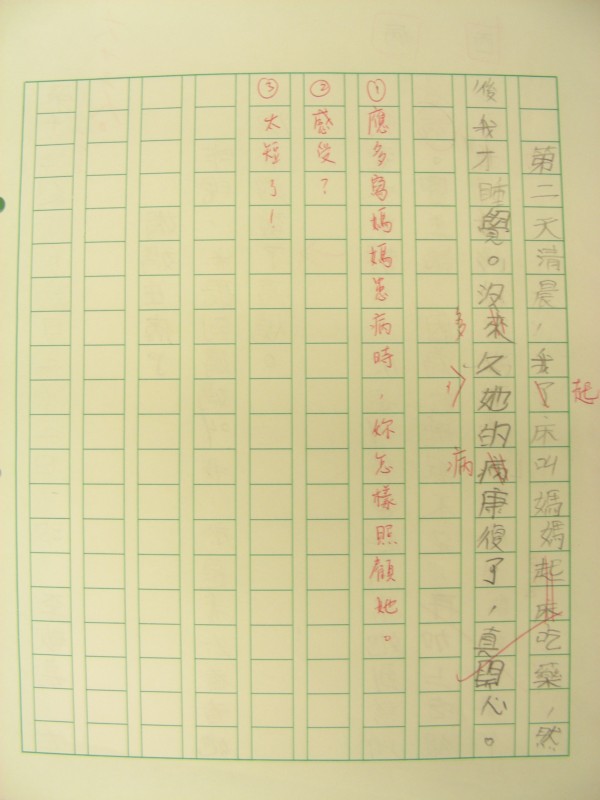 起
第二天清晨，我了床叫媽媽起床吃藥，然
後我才睡覺。沒來久她的病康復了，真開心。
多
病
①應多寫媽媽患病時，妳怎樣照顧她。
②感受？
③太短了！